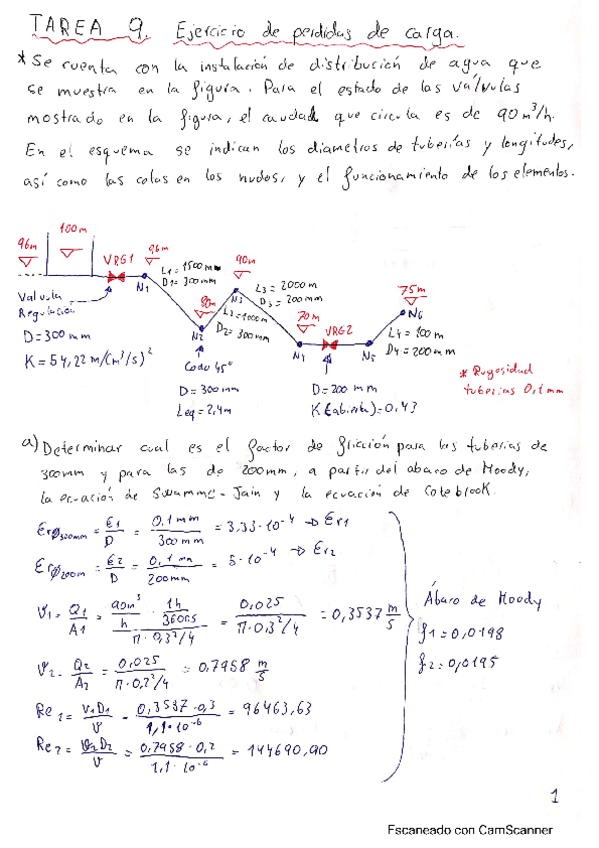 TAREA 9. Ejercicio de perdidas de carga.
* Se cuenta con la instalación de distribución de agua que
se muestra en la figura. Para el estado de las válvulas
mostrado en la figura, el caudal que circula es de 90 m³/h.
En el esquema se indican los diametros de tuberías y longitudes,
así como las cotas en los nudos, y el funcionamiento de los elementos.
96m
100m
VRG1
96m
N1
L1=1500m
D1=300mm
80m
N2
90m
N3
L3=1000m
D2=300mm
L3=2000m
D3=200mm
70m
N4
VRG2
N5
75m
N6
L4=100m
D4=200mm
Valvula
Regulación
D=300mm
K=54,22 m/(m³/s)²
Codo 45°
D=300mm
Leq=2,4m
D=200 mm
K(abierta)=0,43
* Rugosidad
tuberias 0,1mm
a) Determinar cual es el factor de fricción para las tuberias de
300mm y para las de 200mm, a partir del abaco de Moody,
la ecuación de Swamme-Jain y la ecuación de Colebrook.
Erϕ300mm = ε1/D = 0,1mm/300mm = 3,33·10⁻⁴ → Er1
Erϕ200m = ε2/D = 0,1mm/200mm = 5·10⁻⁴ → Er2
V1 = Q1/A1 = (90m³/h · 1h/3600s)/(π·0,3²/4) = 0,025/(π·0,3²/4) = 0,3537 m/s
V2 = Q2/A2 = 0,025/(π·0,2²/4) = 0,7958 m/s
Re1 = V1D1/ν = 0,3537·0,3/1,1·10⁻⁶ = 96463,63
Re2 = V2D2/ν = 0,7958·0,2/1,1·10⁻⁶ = 144690,90
Ábaro de Moody
f1=0,0198
f2=0,0195
1
Escaneado con CamScanner